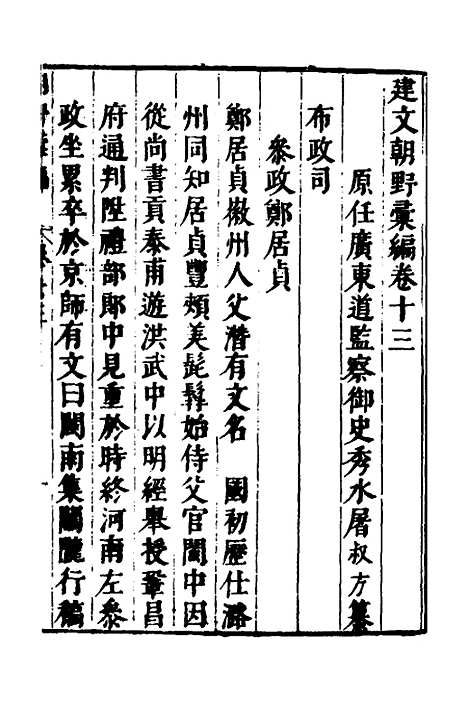 建文朝野彙編卷十三
原任廣東道監察御史秀水屠叔方纂
布政司
參政鄭居貞
鄭居貞徽州人父潛有文名　國初歷仕潞
州同知居貞豐頰美髭髯始侍父官閩中因
從尚書貢泰甫遊洪武中以明經舉授鞏昌
府通判陞禮部郎中見重於時終河南左參
政坐累卒於京師有文曰閩南集關隴行稿